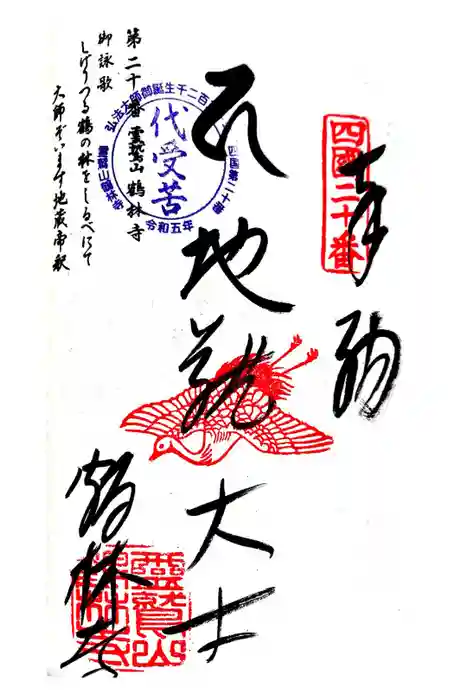 奉納
四國二十番
地蔵大士
鶴林寺
靈鷲山
弘法大師御誕生千二百
四国第二十番
代受苦
令和五年
霊鷲山鶴林寺
第二十番 霊鷲山 鶴林寺
御詠歌
しげりつる鶴の林をしるべにて
大師ぞいます地蔵帝釈